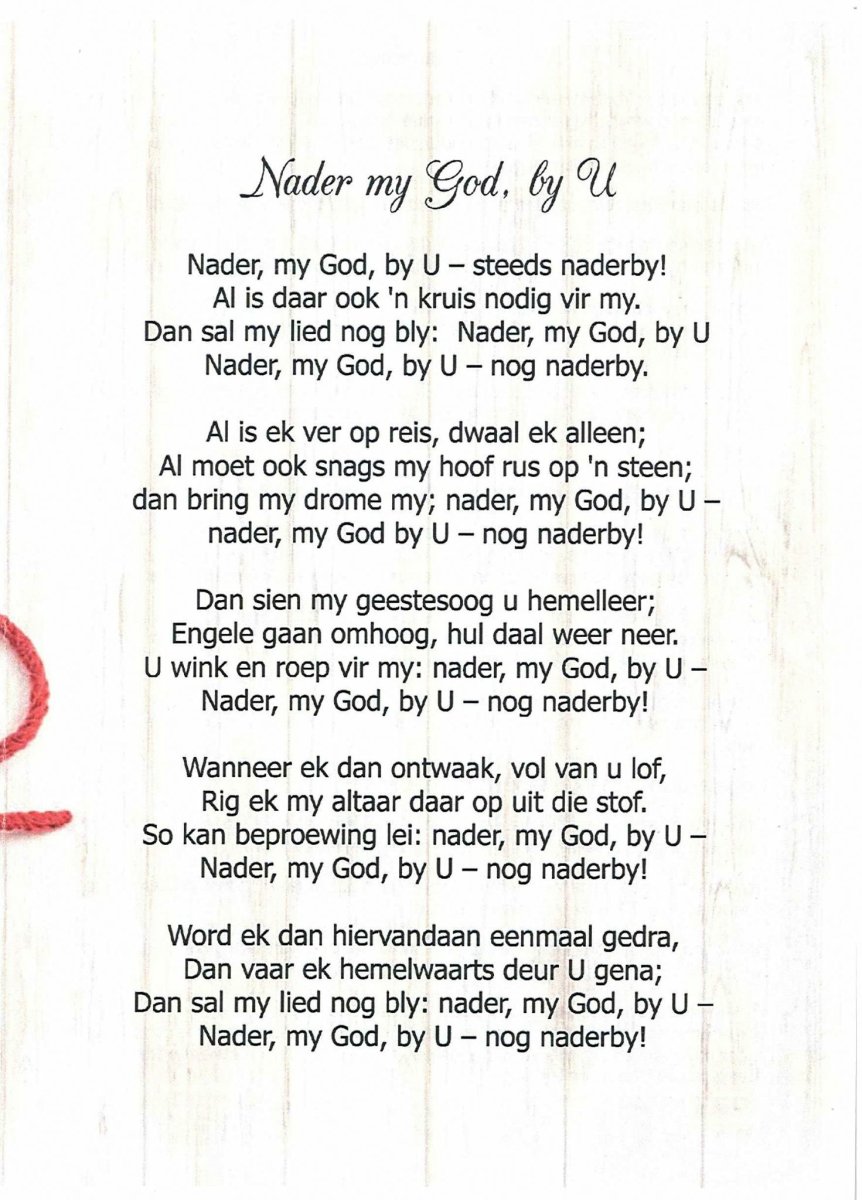 Nader my God, by U
Nader, my God, by U – steeds naderby!
Al is daar ook 'n kruis nodig vir my.
Dan sal my lied nog bly:  Nader, my God, by U
Nader, my God, by U – nog naderby.
Al is ek ver op reis, dwaal ek alleen;
Al moet ook snags my hoof rus op 'n steen;
dan bring my drome my; nader, my God, by U –
nader, my God by U – nog naderby!
Dan sien my geestesoog u hemelleer;
Engele gaan omhoog, hul daal weer neer.
U wink en roep vir my: nader, my God, by U –
Nader, my God, by U – nog naderby!
Wanneer ek dan ontwaak, vol van u lof,
Rig ek my altaar daar op uit die stof.
So kan beproewing lei: nader, my God, by U –
Nader, my God, by U – nog naderby!
Word ek dan hiervandaan eenmaal gedra,
Dan vaar ek hemelwaarts deur U gena;
Dan sal my lied nog bly: nader, my God, by U –
Nader, my God, by U – nog naderby!